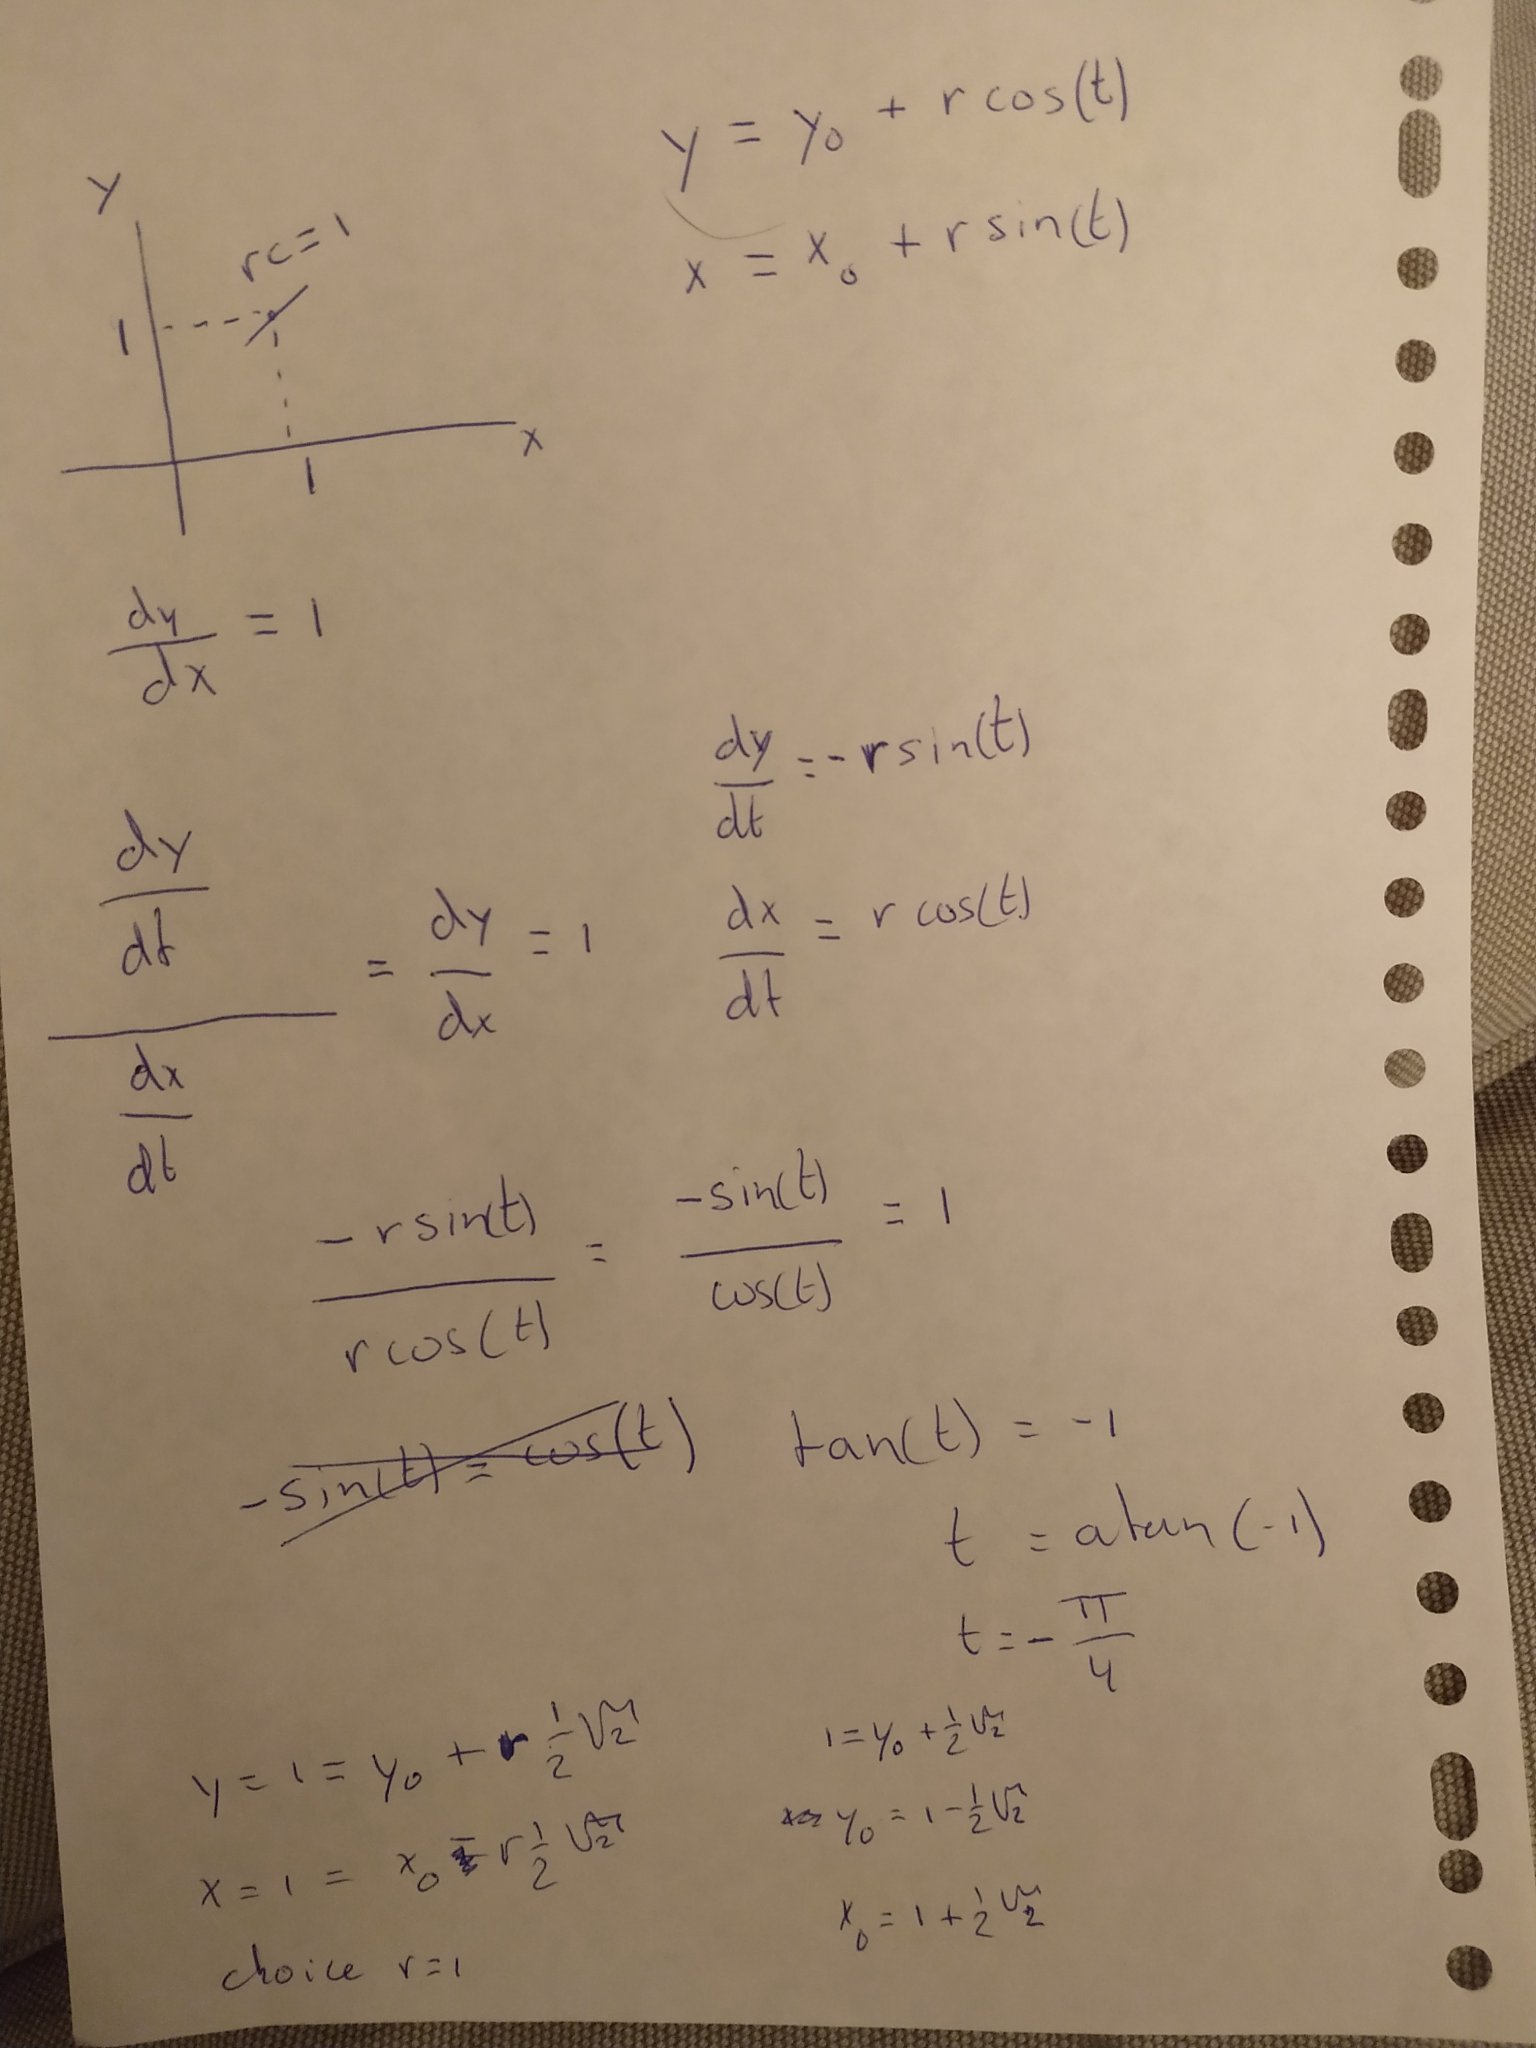 y = y₀ + r cos(t)
x = x₀ + r sin(t)
y
rc=1
1
x
1
dy/dx = 1
dy/dt = -r sin(t)
dx/dt = r cos(t)
(dy/dt)/(dx/dt) = dy/dx = 1
-r sin(t)/r cos(t) = -sin(t)/cos(t) = 1
-sin(t) = cos(t)
tan(t) = -1
t = atan(-1)
t = -π/4
y = 1 = y₀ + r ½√2
x = 1 = x₀ - r ½√2
choice r=1
1 = y₀ + ½√2
y₀ = 1 - ½√2
x₀ = 1 + ½√2